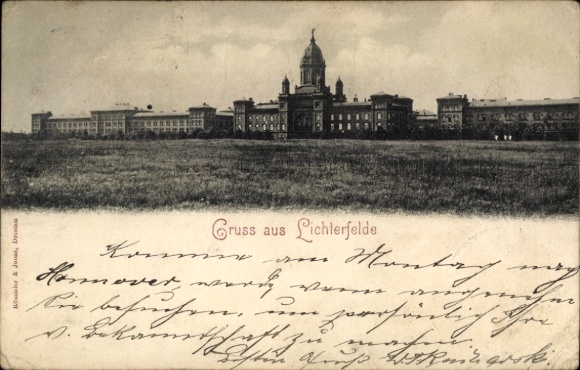 Gruss aus Lichterfelde
Römmler & Jonas, Dresden
Komme am Montag nach
Hannover, werde, wenn angenehm
Sie besuchen, um persönlich Ihre
w. Bekanntschaft zu machen.
Besten Gruß